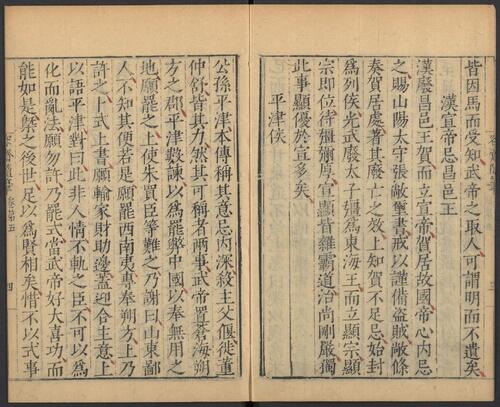 皆因馬而受知武帝之取人可謂明而不遺矣
漢宣帝忌昌邑王
漢廢昌邑王賀而立宣帝賀居故國帝心內忌
之賜山陽太守張敞璽書戒以謹備盜賊敞條
奏賀居處著其廢亡之效上知賀不足忌始封
爲列侯光武廢太子彊爲東海王而立顯宗顯
宗即位待彊彌厚宣顯皆雜霸道治尚剛嚴獨
此事顯優於宣多矣
平津侯
公孫平津本傳稱其意忌內深殺主父偃徙董
仲舒皆其力然其可稱者兩事武帝置蒼海朔
方之郡平津數諫以爲罷弊中國以奉無用之
地願罷之上使朱買臣等難之乃謝曰山東鄙
人不知其便若是願罷西南夷專奉朔方上乃
許之卜式上書願輸家財助邊蓋迎合主意上
以語平津對曰此非人情不軌之臣不可以爲
化而亂法願勿許乃罷式當武帝好大喜功而
能如是槩之後世足以爲賢相矣惜不以式事
四